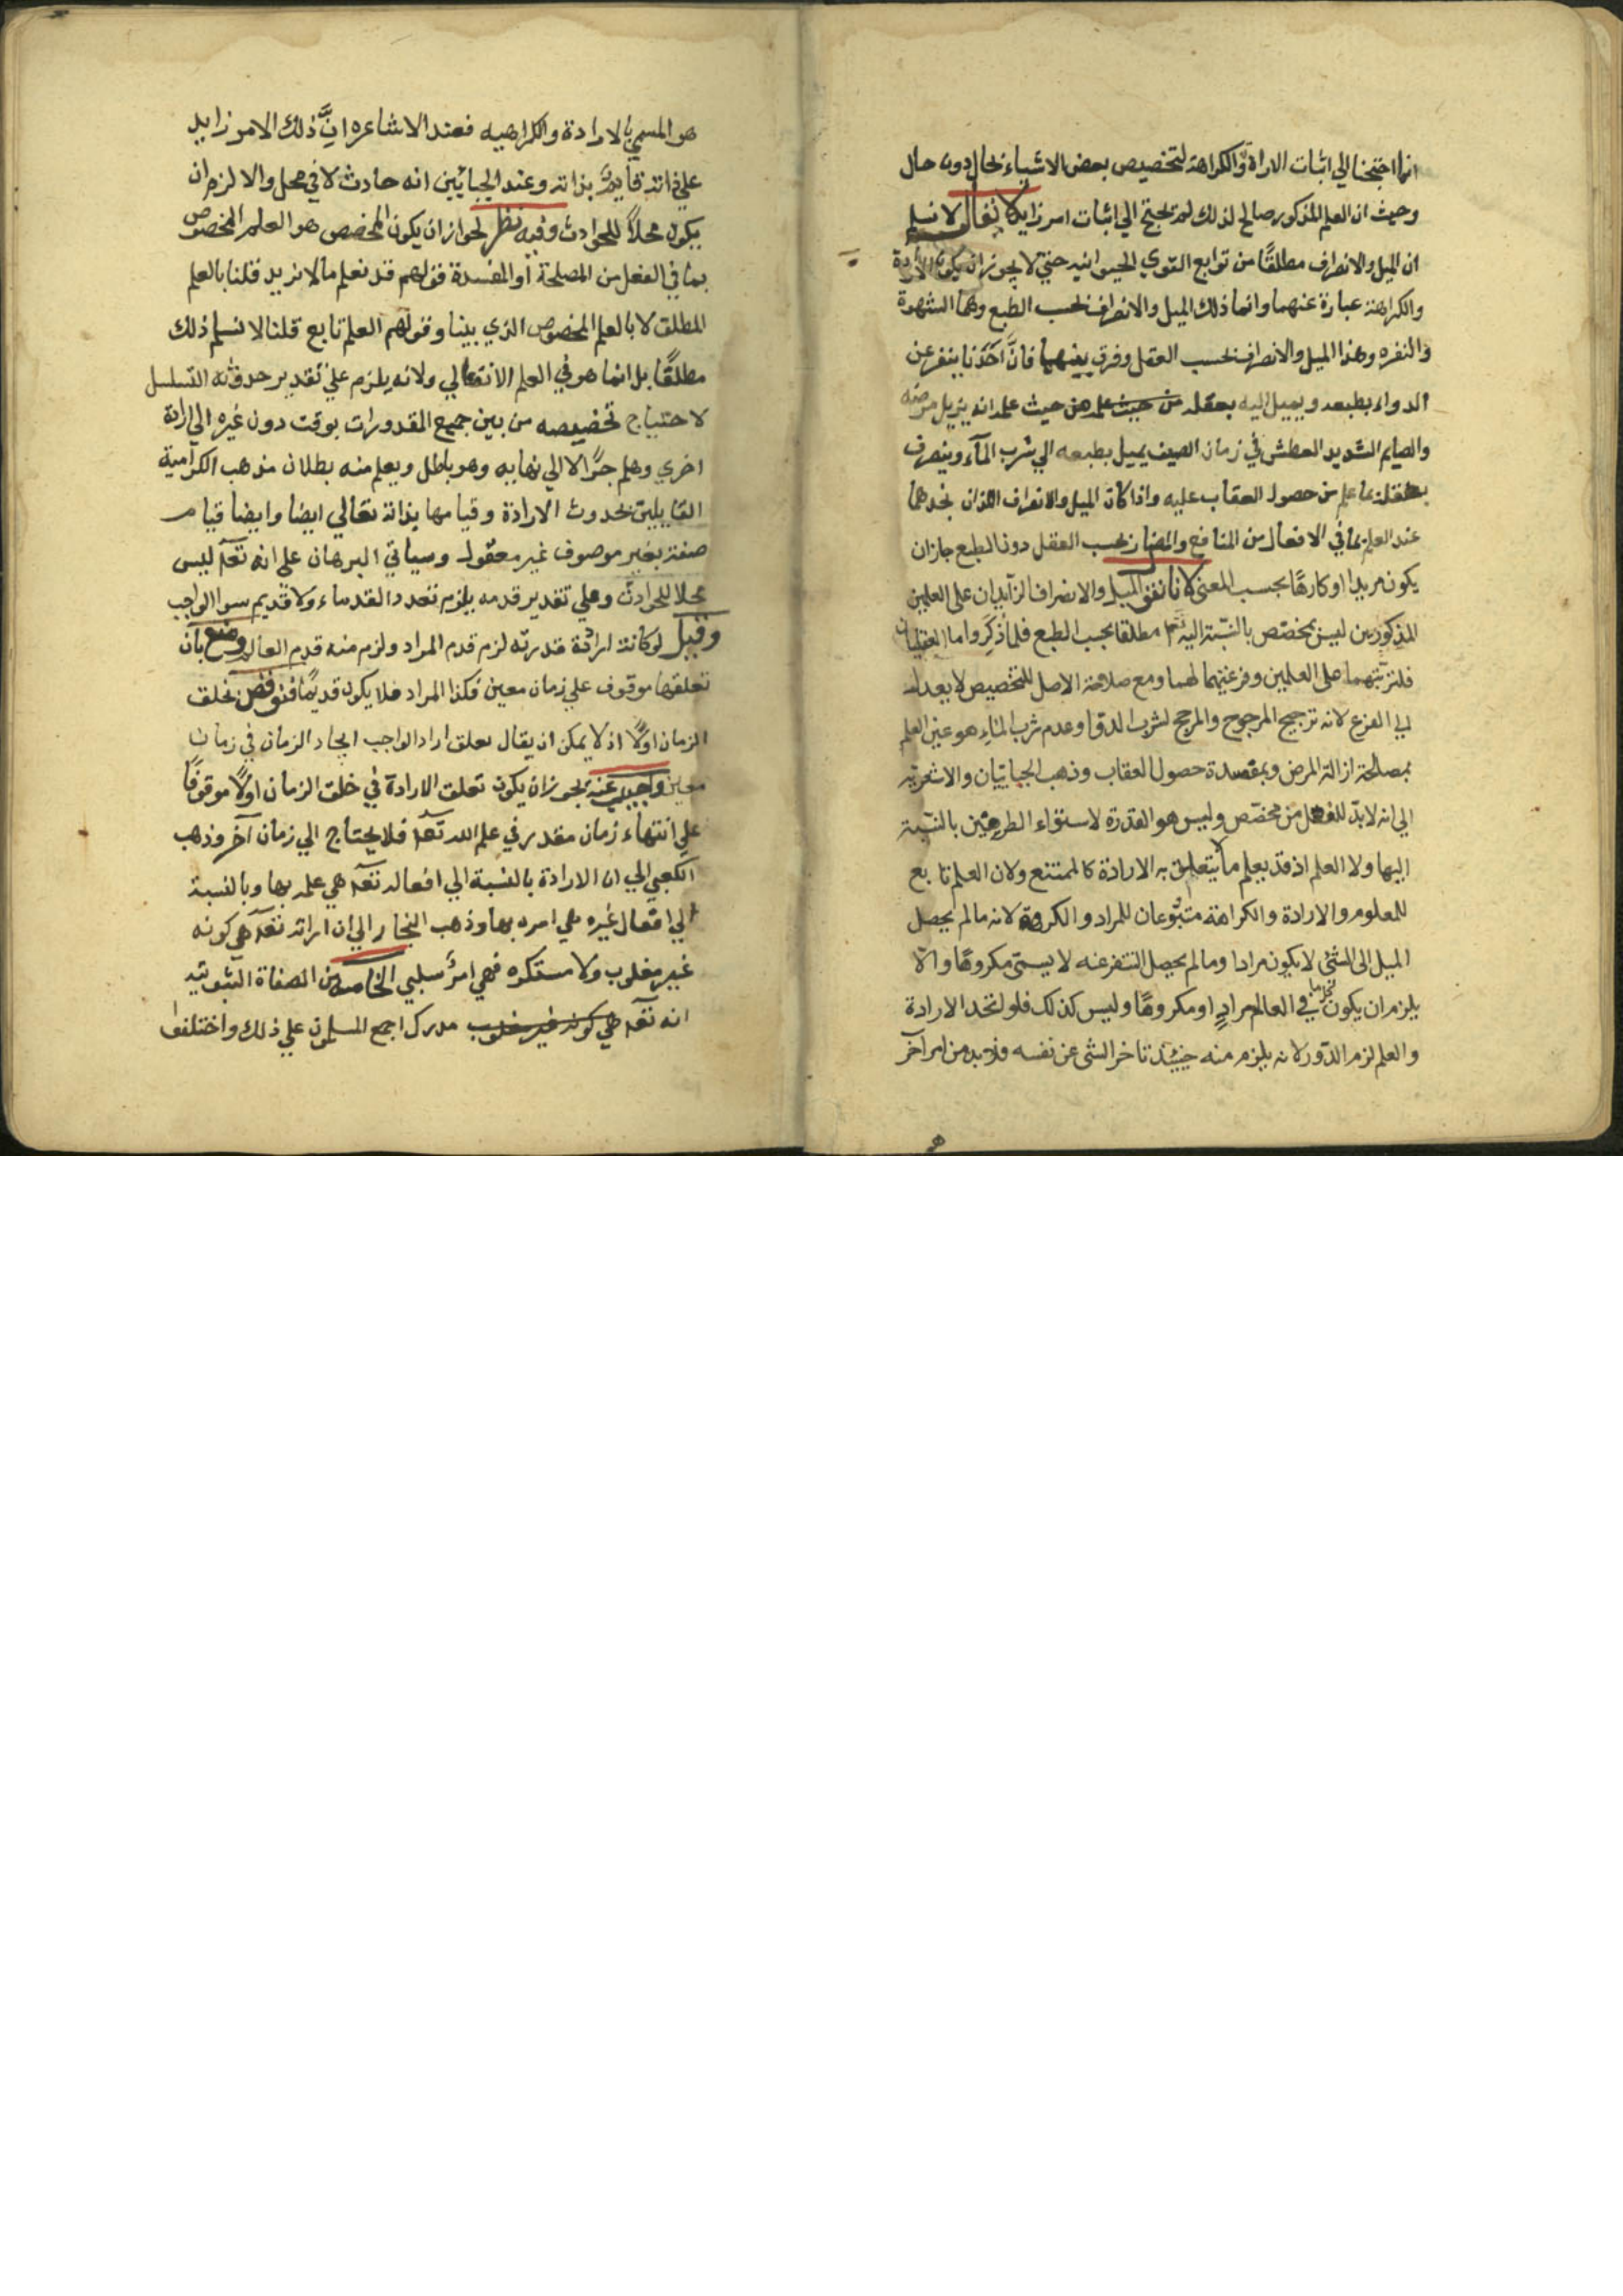 انما احتجنا الي اثبات الارادة والكراهة لتخصيص بعض الاشياء بحال دون حال
وحيث ان العلم المذكور صالح لذلك لم نحتج الي اثبات امر زايد لا نقال لا نسلم
ان الميل والانصراف مطلقًا من توابع القوي الحيوانيه حتي لا يجوز ان يكون الارادة
والكراهة عبارة عنهما وانما ذلك الميل والانصراف بحسب الطبع وهما الشهوة
والنفره وهذا الميل والانصراف بحسب العقل وفرق بينهما فانَّ احَدَنا ينفر عن
الدواء بطبعه ويميل اليه بعقله من حيث علمه من حيث علمه انه يزيل مرضه
والصايم الشديد العطش في زمان الصيف يميل بطبعه الي شرب المآء وينصرف
بعقله لما علم من حصول العقاب عليه واذا كان الميل والانصراف اللذان نجدهما
عند العلم بما في الافعال من المنافع والمضار بحسب العقل دون الطبع جاز ان
يكون مريدا او كارهًا بحسب المعنى لانا نقول الميل والانصراف الزآيدان على العلمين
المذكورين ليس بمخصّص بالنسّبة اليه تع مطلقا بحسب الطبع فلما ذكِر واما العقليان
فلترتبّهما على العلمين وفرعيّتهما لهما ومع صلاحة الاصل للتخصيص لا يعدل
الي الفرع لانه ترجيح المرجوح والمرجح لشرب الدوا وعدم شرب المآءِ هو عين العلم
بمصلحة ازالة المرض وبمفسدة حصول العقاب وذهب الجباييّان والاشعريّه
الي انه لا بدّ للفعل من مخصّص وليس هو القدرة لاستواء الطرفين بالنسّبة
اليها ولا العلم اذ قد يعلم ما لا يتعلق به الارادة كالممتنع ولان العلم تابع
للمعلوم والارادة والكراهة متبوعان للمراد والكروه لانه ما لم يحصل
الميل الى الشئ لا يكون مرادا وما لم يحصل التنفر عنه لا يسمّى مكروهًا والّا
يلزم ان يكون في العالم مرادٍ او مكروهًا وليس كذلك فلو اتحدا الارادة
والعلم لزم الدّور لانه يلزم منه حينئذ تاخر الشئ عن نفسه فلا بد من امر آخر
هو المسمي بالارادة والكراهيه فعند الاشاعره انَّ ذلك الامر زايد
علي ذاته قايم بذاته وعند الجبايّين انه حادث لا في محل والا لزم ان
يكون محلاً للحوادث وفيه نظر لجواز ان يكون المخصص هو العلم المخصوص
بما في الفعل من المصلحة أو المفسدة فقولهم قد نعلم ما لا نريد قلنا بالعلم
المطلق لا بالعلم المخصوص الذي بينا وقولهم العلم تابع قلنا لا نسلم ذلك
مطلقًا بل انما هو في العلم الانفعالي ولانه يلزم علي تقدير حدوثه التسلسل
لاحتياج تخصيصه من بين جميع المقدورات بوقت دون غيره الي ارادة
اخري وهلم جرًا لا الي نهايه وهو باطل ويعلم منه بطلان مذهب الكرامية
القايلين بحدوث الارادة وقيامها بذاته تعالي ايضا وايضا قيام
صفة بغير موصوف غير معقول وسياتي البرهان على انه تعآ ليس
محلا للحوادث وعلي تقدير قدمه يلزم تعدد القدماء ولا قديم سوا الواجب
وقيل لو كانت ارادة قديمة لزم قدم المراد ولزم منه قدم العالم ومنع بان
تعلقها موقوف علي زمان معين فكذا المراد فلا يكون قديمًا فنوقض بخلق
الزمان اولًا اذ لا يمكن ان يقال تعلق اراد الواجب ايجاد الزمان في زمان
معين واجيب عنه بجواز ان يكون تعلق الارادة في خلق الزمان اولًا موقوفًا
علي انتهاء زمان مقدر في علم الله تعآ فلا يحتاج الي زمان آخر وذهب
الكعبي الي ان الارادة بالنسبة الي افعاله تعآ هي علمه بها وبالنسبة
الي افعال غيره هي امره بها وذهب النجار الي ان ارادته تعآ هي كونه
غير مغلوب ولا مستكره فهي امرٌ سلبي الخامسه من الصفاة الثبوتيه
انه تعآ هي كونه غير مغلوب مدرك اجمع المسلمون علي ذلك واختلفوا